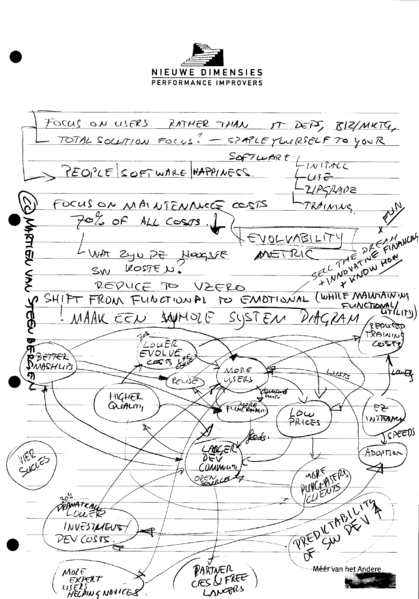 NIEUWE DIMENSIES
PERFORMANCE IMPROVERS
FOCUS ON USERS RATHER THAN IT DEPS, BIZ/MKTG,
TOTAL SOLUTION FOCUS! — STAPLE YOURSELF TO YOUR
SOFTWARE
PEOPLE | SOFTWARE | HAPPINESS
INSTALL
USE
UPGRADE
TRAINING
FOCUS ON MAINTENANCE COSTS
70% OF ALL COSTS.
EVOLVABILITY
METRIC
WAT ZIJN DE
SW KOSTEN?
REDUCE TO
SELL THE DREAM
+ INNOVATIVE FINANCING
+ KNOW HOW
+ FUN
SHIFT FROM FUNCTIONAL TO EMOTIONAL (WHILE MAINTAINING
FUNCTIONAL/
UTILITY)
! MAAK EEN SIMPLE SYSTEM DIAGRAM
© MARTIEN VAN STEENBERGEN
BETTER
MASHUPS
LOWER
EVOLVE
COSTS
REUSE
MORE
USERS
REDUCED
TRAINING
COSTS
HIGHER
QUALITY
MORE
FUNCTIONALITY
LOW
PRICES
EZ
LOWERS
SPEEDS
ADOPTION
LARGER
DEV
COMMUNITY
OPEN
feeds
MORE
PURCHASERS
/CLIENTS
VIER
SUCCES
DRAMATICALLY
LOWER
INVESTMENT/
DEV COSTS.
PREDICTABILITY
OF SW DEV ↑
MORE
EXPERT
USERS
HELPING NOVICES
PARTNER
CIES & FREE
LANCERS
Méér van het Andere